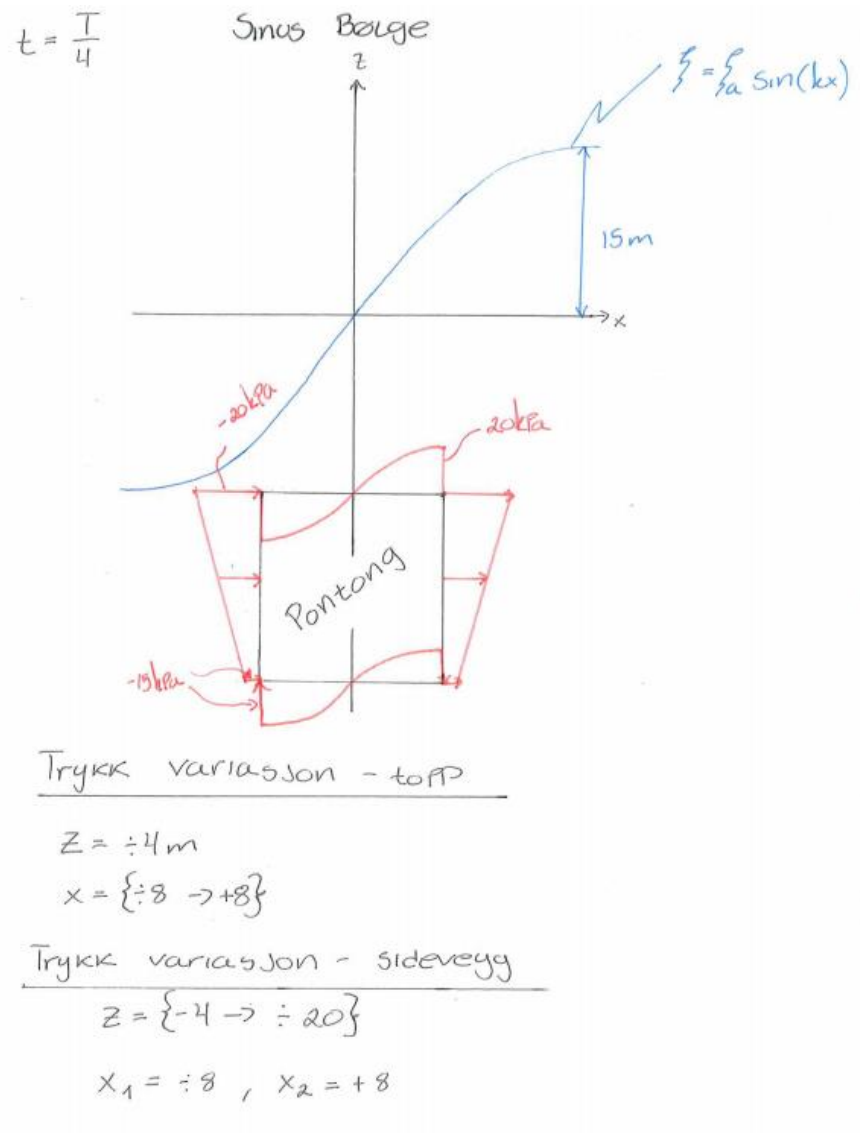 t = T/4
Sinus Bølge
z
ξ = ξa sin(kx)
15m
x
-20kPa
20kPa
Pontong
-15kPa
Trykk variasjon - topp
Z = ÷4m
x = {÷8 -> +8}
Trykk variasjon - sidevegg
Z = {-4 -> ÷20}
x1 = ÷8 , x2 = +8